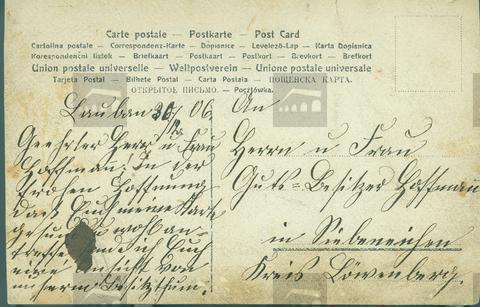 Carte postale — Postkarte — Post Card
Cartolina postale — Correspondenz-Karte — Dopisnice — Levelező-Lap — Karta Dopisnica
Korespondenční lístek — Briefkaart — Postkaart — Postkort — Brevkort — Brefkort
Union postale universelle — Weltpostverein — Unione postale universale
Tarjeta Postal — Bilhete Postal — Carta Postala — ПОЩЕНСКА КАРТА.
ОТКРЫТОЕ ПИСЬМО. — Pocztówka.
Lauban 06
Geehrter Herr u. Frau
Hoffman! In der
frohen Hoffnung
daß Euch meine Karte
gesund wohl an-
treffe Euch
eine Ansicht von
unserm Besitzthum.
An
Herrn u Frau
Guts-Besitzer Hoffman
in Siebeneichen
Kreis Löwenberg.